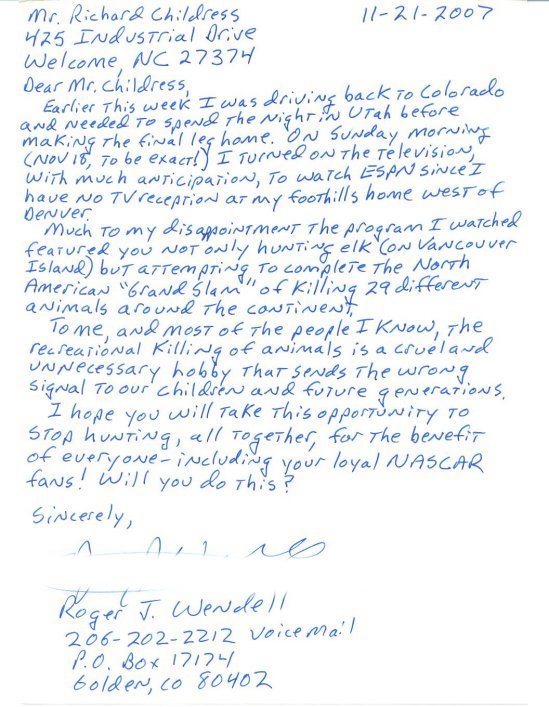 Mr. Richard Childress 11-21-2007
425 Industrial Drive
Welcome, NC 27374
Dear Mr. Childress,
Earlier this week I was driving back to Colorado
and needed to spend the night in Utah before
making the final leg home. On Sunday morning
(Nov 18, to be exact!) I turned on the television,
with much anticipation, to watch ESPN since I
have no TV reception at my foothills home west of
Denver.
Much to my disappointment the program I watched
featured you not only hunting elk (on Vancouver
Island) but attempting to complete the North
American "Grand Slam" of killing 29 different
animals around the continent.
To me, and most of the people I know, the
recreational killing of animals is a cruel and
unnecessary hobby that sends the wrong
signal to our children and future generations.
I hope you will take this opportunity to
stop hunting, all together, for the benefit
of everyone - including your loyal NASCAR
fans! Will you do this?
Sincerely,
Roger J. Wendell
206-202-2212 voicemail
P.O. Box 17174
Golden, CO 80402